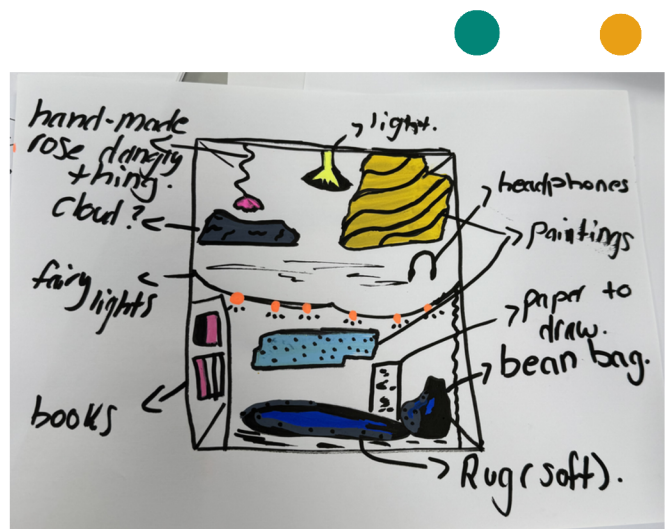 hand-made
rose dangly
thing.
cloud?
fairy
lights
books
light.
headphones
paintings
paper to
draw.
bean bag.
Rug (soft).